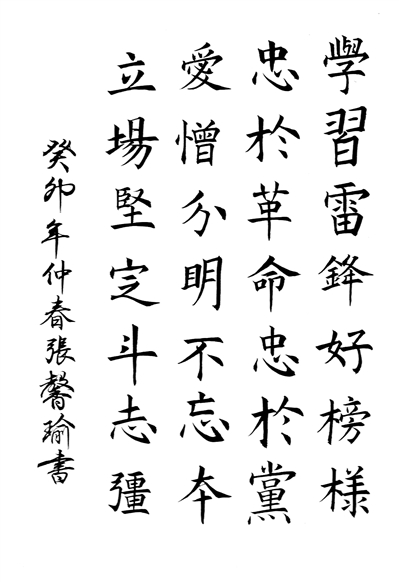 學習雷鋒好榜樣
忠於革命忠於黨
愛憎分明不忘本
立場堅定斗志彊
癸卯年仲春張馨瑜書